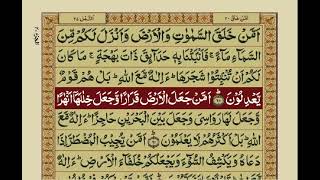 اَمَّنْ خَلَقَ ٢٠ النَّمْل ٢٧
اَمَّنْ خَلَقَ السَّمٰوٰتِ وَالْاَرْضَ وَاَنْزَلَ لَكُمْ مِّنَ
السَّمَآءِ مَآءً ۚ فَاَنْۢبَتْنَا بِهٖ حَدَآىِٕقَ ذَاتَ بَهْجَةٍ ۚ مَا كَانَ
لَكُمْ اَنْ تُنْۢبِتُوْا شَجَرَهَا ؕ ءَاِلٰهٌ مَّعَ اللّٰهِ ؕ بَلْ هُمْ قَوْمٌ
يَّعْدِلُوْنَ ﴿٦٠﴾ اَمَّنْ جَعَلَ الْاَرْضَ قَرَارًا وَّجَعَلَ خِلٰلَهَاۤ اَنْهٰرًا
وَّجَعَلَ لَهَا رَوَاسِيَ وَجَعَلَ بَيْنَ الْبَحْرَيْنِ حَاجِزًا ؕ ءَاِلٰهٌ مَّعَ
اللّٰهِ ؕ بَلْ اَكْثَرُهُمْ لَا يَعْلَمُوْنَ ﴿٦١﴾ اَمَّنْ يُّجِيْبُ الْمُضْطَرَّ اِذَا
دَعَاهُ وَيَكْشِفُ السُّوْٓءَ وَيَجْعَلُكُمْ خُلَفَآءَ الْاَرْضِ ؕ ءَاِلٰهٌ مَّعَ